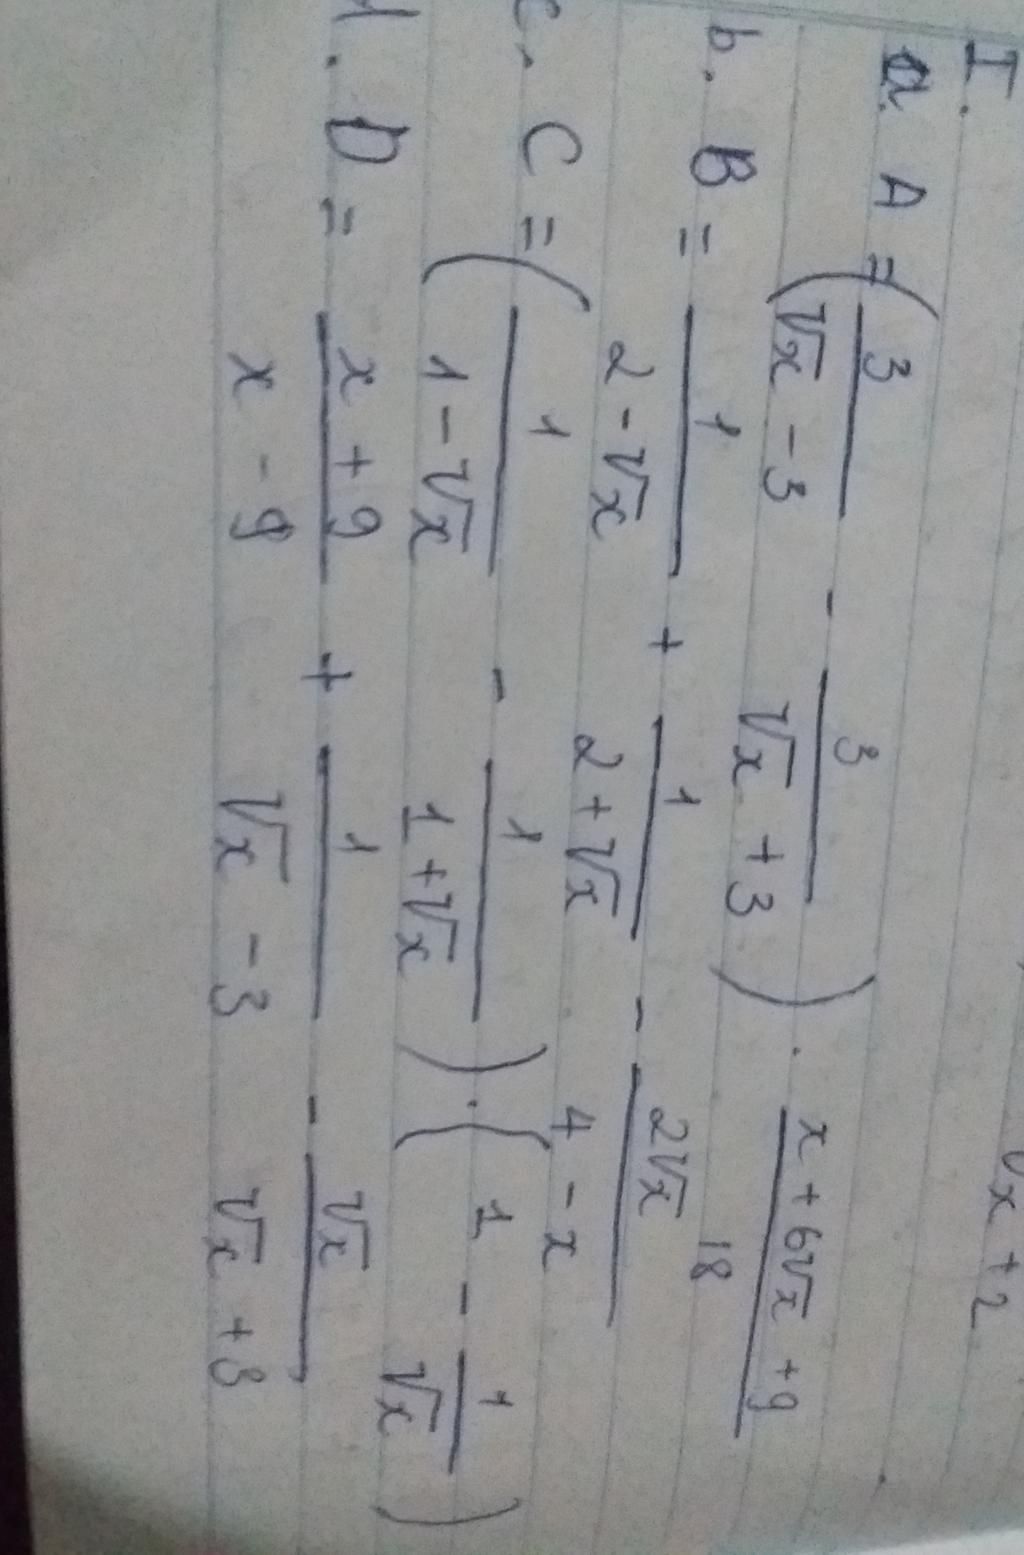 √x + 2
I.
a. A = ( 3/(√x - 3) - 3/(√x + 3) ) . (x + 6√x + 9)/18
b. B = 1/(2 - √x) + 1/(2 + √x) - 2√x/(4 - x)
c. C = ( 1/(1 - √x) - 1/(1 + √x) ) . ( 1 - 1/√x )
d. D = (x + 9)/(x - 9) + 1/(√x - 3) - √x/(√x + 3)